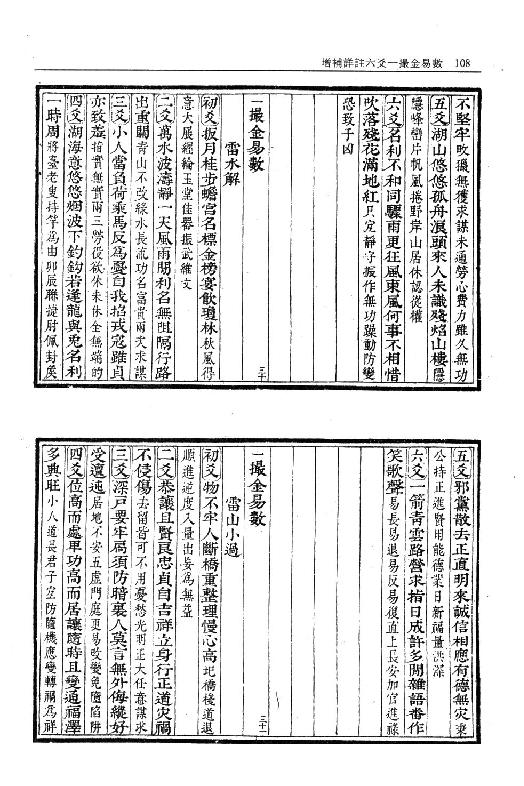 增補詳註六爻一撮金易數 108
不堅牢收獵無獲求謀未通勞心費力雖久無功
五爻湖山悠悠孤舟浪頭來人未識殘焰山樓隱
隱峰巒片帆風捲野岸山居休認從權
六爻名利不和同驟雨更狂風東風何事不相惜
吹落殘花滿地紅只宜靜守振作無功躁動防變
恐致子凶
一撮金易數 三十
雷水解
初爻扳月桂步蟾宮名標金榜宴飲瓊林秋風得
意大展經綸玉堂佳器振武維文
二爻萬水波濤靜一天風雨閒利名無阻隔行路
出重關青山不改綠水長流功名富貴兩天求謀
三爻小人當負荷乘馬反為憂自我招戎寇雖貞
亦致羞招賞無實兩三勞役欲休未休全無穩的
四爻湖海意悠悠烟波下釣鉤若逢龍與兎名利
一時周將臺老叟持竿為由卯辰聯捷尉佩封侯
五爻邪黨散去正直明來誠信相應有德無灾秉
公持正進賢用能德業日新福量洪深
六爻一箭青雲路營求指日成許多閒雜語番作
笑歌聲易長易退易反易復直上長安加官進祿
一撮金易數 三十一
雷山小過
初爻物不牢人斷橋重整理慢心高圯橋棧道退
順進逆度入量出妄為無益
二爻恭讓且賢良忠貞自吉祥立身行正道灾禍
不侵傷去留皆可不用憂愁光明正大任意謀求
三爻深戶要牢扃須防暗裏人莫言無外侮縱好
受邅迍居地不安五虛門庭更易改變免墮陷阱
四爻位高而處卑功高而居讓隨時且變通福澤
多興旺小人道長君子宜防隨機應變轉禍為祥